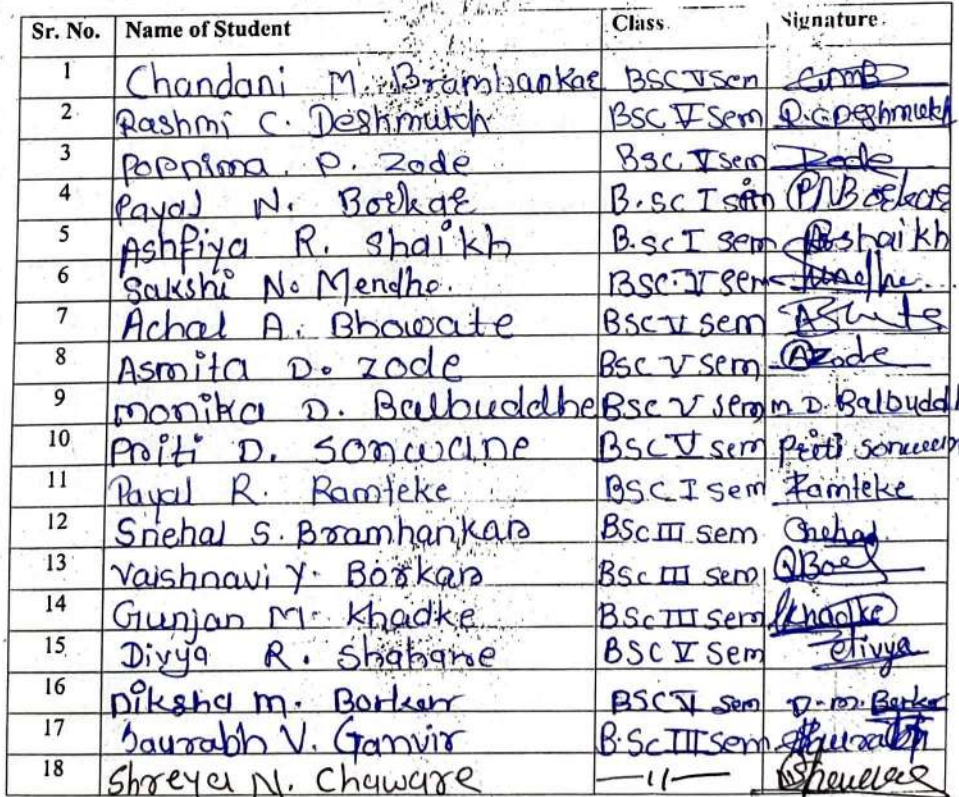 Sr. No. Name of Student Class Signature
1 Chandani M. Bramhankar BSC V Sem CMB
2 Rashmi C. Deshmukh BSC V Sem R.C. Deshmukh
3 Poppima P. Zode BSC V sem Zode
4 Payal N. Borkar B.sc I sem P.N.Borkar
5 Ashfiya R. Shaikh B.sc I sem Shaikh
6 Sakshi N. Mendhe. BSC. V Sem
7 Achal A. Bhowate BSC V sem
8 Asmita D. Zode BSC V sem AZode
9 monika D. Balbuddhe BSC V sem m D. Balbuddh
10 Priti D. Sonwane BSC V sem Priti
11 Payal R. Ramteke BSC I sem Ramteke
12 Snehal S. Bramhankar BSc III sem Snehal
13 Vaishnavi Y. Borkar BSc III sem
14 Gunjan M. Khadke BSc III sem Khadke
15 Divya R. Shahare BSC V Sem Divya
16 Diksha m. Borkar BSC V sem D.m. Borkar
17 Saurabh V. Ganvir B.Sc III sem Saurabh
18 Shreya N. Chaware —11—